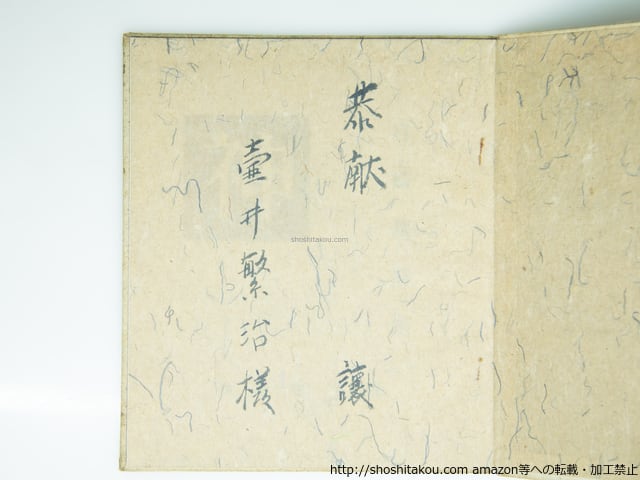 恭献 譲
壷井繁治様
shoshitakou.com
http://shoshitakou.com amazon等への転載・加工禁止